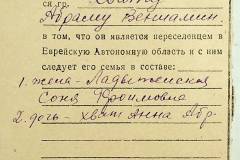 ся гр.
Абраму Вениамин.
в том, что он является переселенцем в
Еврейскую Автономную область и с ним
следует его семья в составе:
1. жена - Ладыженская
Соня Фроимовна
2. дочь - Хват Анна Абр.